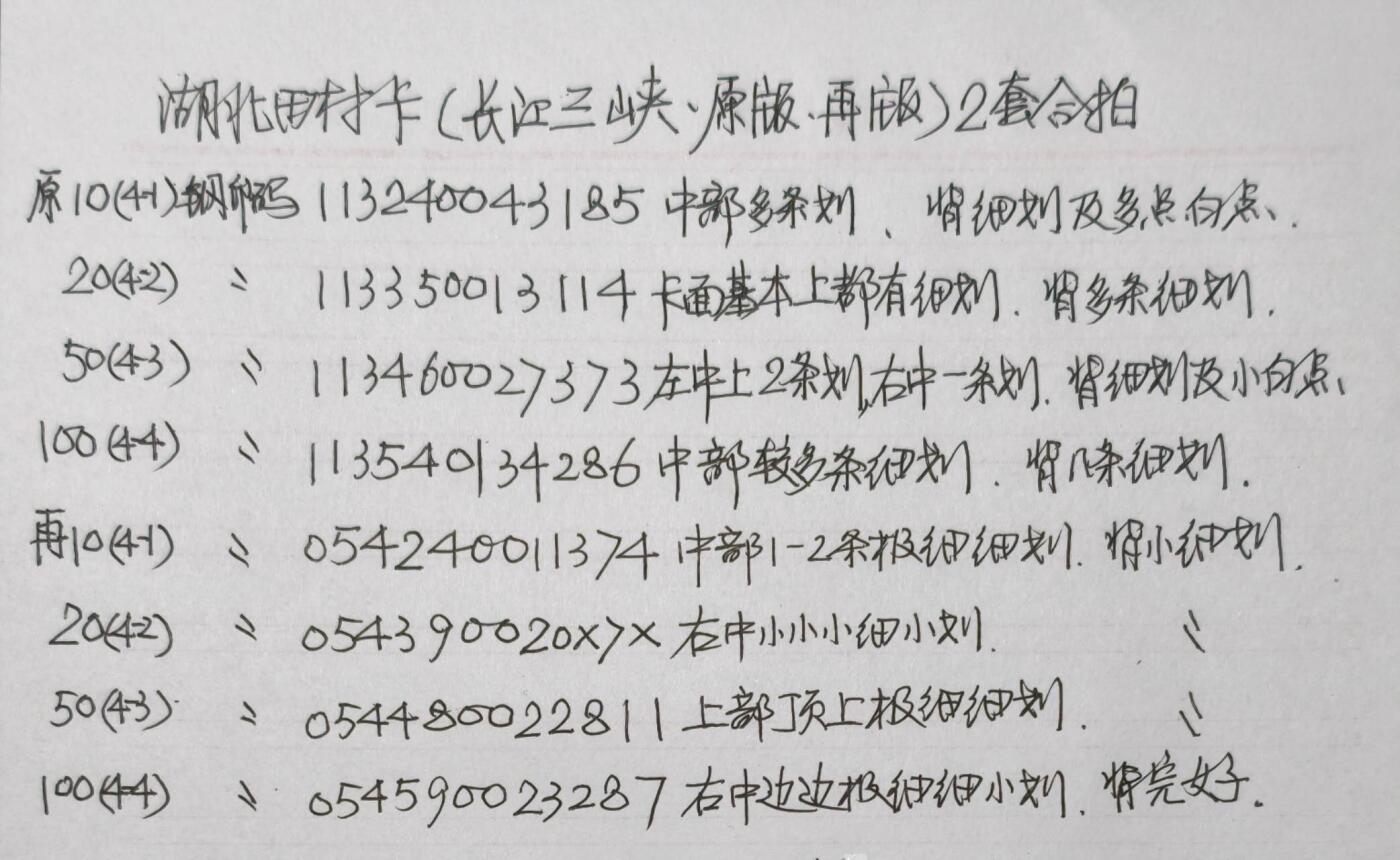 湖北田村卡(长江三峡·原版·再版)2套合拍
原10(4-1)钢印码 113240043185 中部多条划、背细划及多点白点、.
20(4-2) 〃 113350013114 卡面基本上都有细划. 背多条细划.
50(4-3) 〃 113460027373 左中上2条划,右中一条划. 背细划及小白点、
100(4-4) 〃 113540134286 中部较多条细划. 背几条细划.
再10(4-1) 〃 054240011374 中部1-2条极细细划. 背小细划.
20(4-2) 〃 054390020×7× 右中小小小细小划. 〃
50(4-3) 〃 054480022811 上部顶上极细细划. 〃
100(4-4) 〃 054590023287 右中边边极细细小划. 背完好.